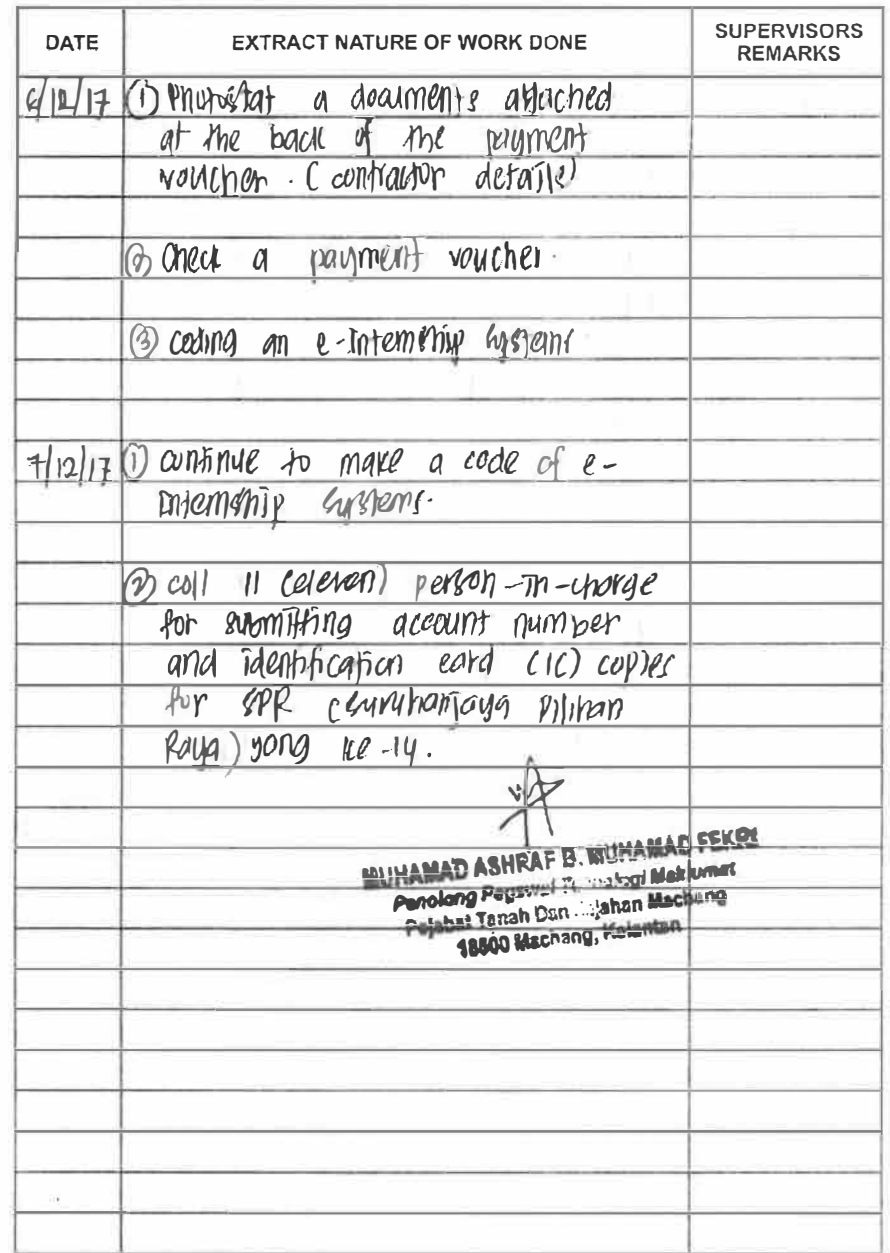 DATE
EXTRACT NATURE OF WORK DONE
SUPERVISORS
REMARKS
6/12/17 ① Photostat a documents attached
at the back of the payment
voucher. (contractor details)
② Check a payment voucher.
③ coding an e-Internship systems
7/12/17 ① continue to make a code of e-
Internship systems.
② call 11 (eleven) person-in-charge
for submitting account number
and identification card (IC) copies
for SPR (Suruhanjaya Pilihan
Raya) yang ke-14.
MUHAMAD ASHRAF B. MUHAMAD FEKRI
Penolong Pegawai Maklumat
Pejabat Tanah Dan Jajahan Machang
18500 Machang, Kelantan